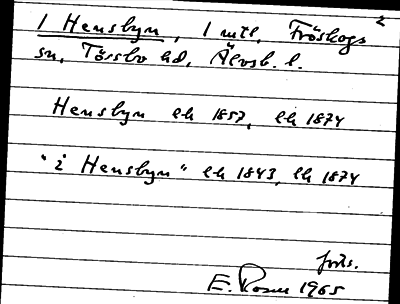 2
1 Hensbyn, 1 mtl, Fröskogs
sn, Tössbo hd, Älvsb. l.
Hensbyn lk 1857, lk 1874
"i Hensbyn" lk 1843, lk 1874
forts.
E. Rosen 1965